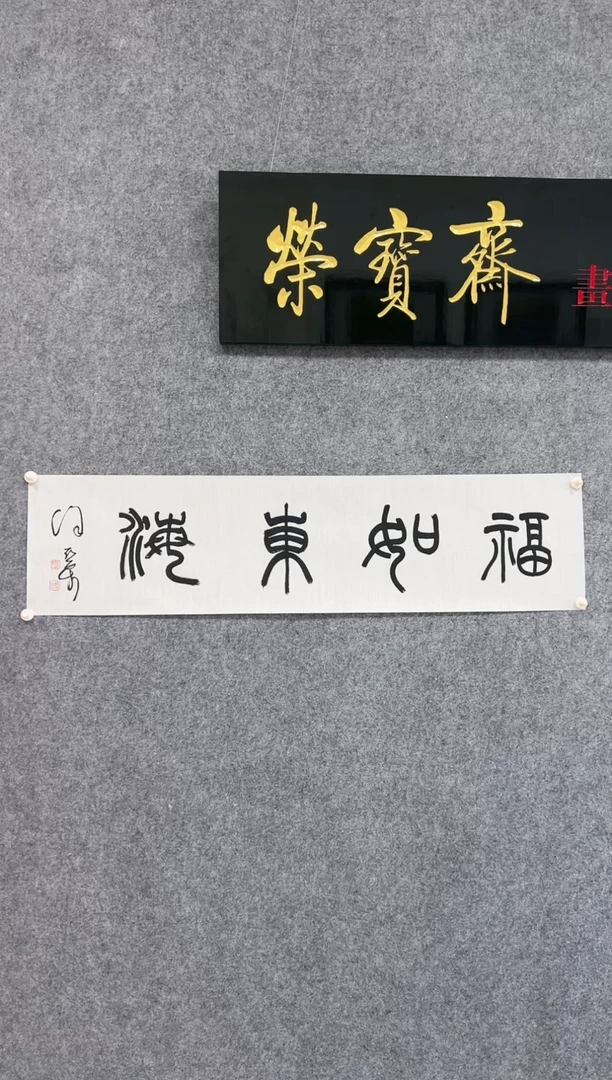 榮寶齋
畫
福如東海